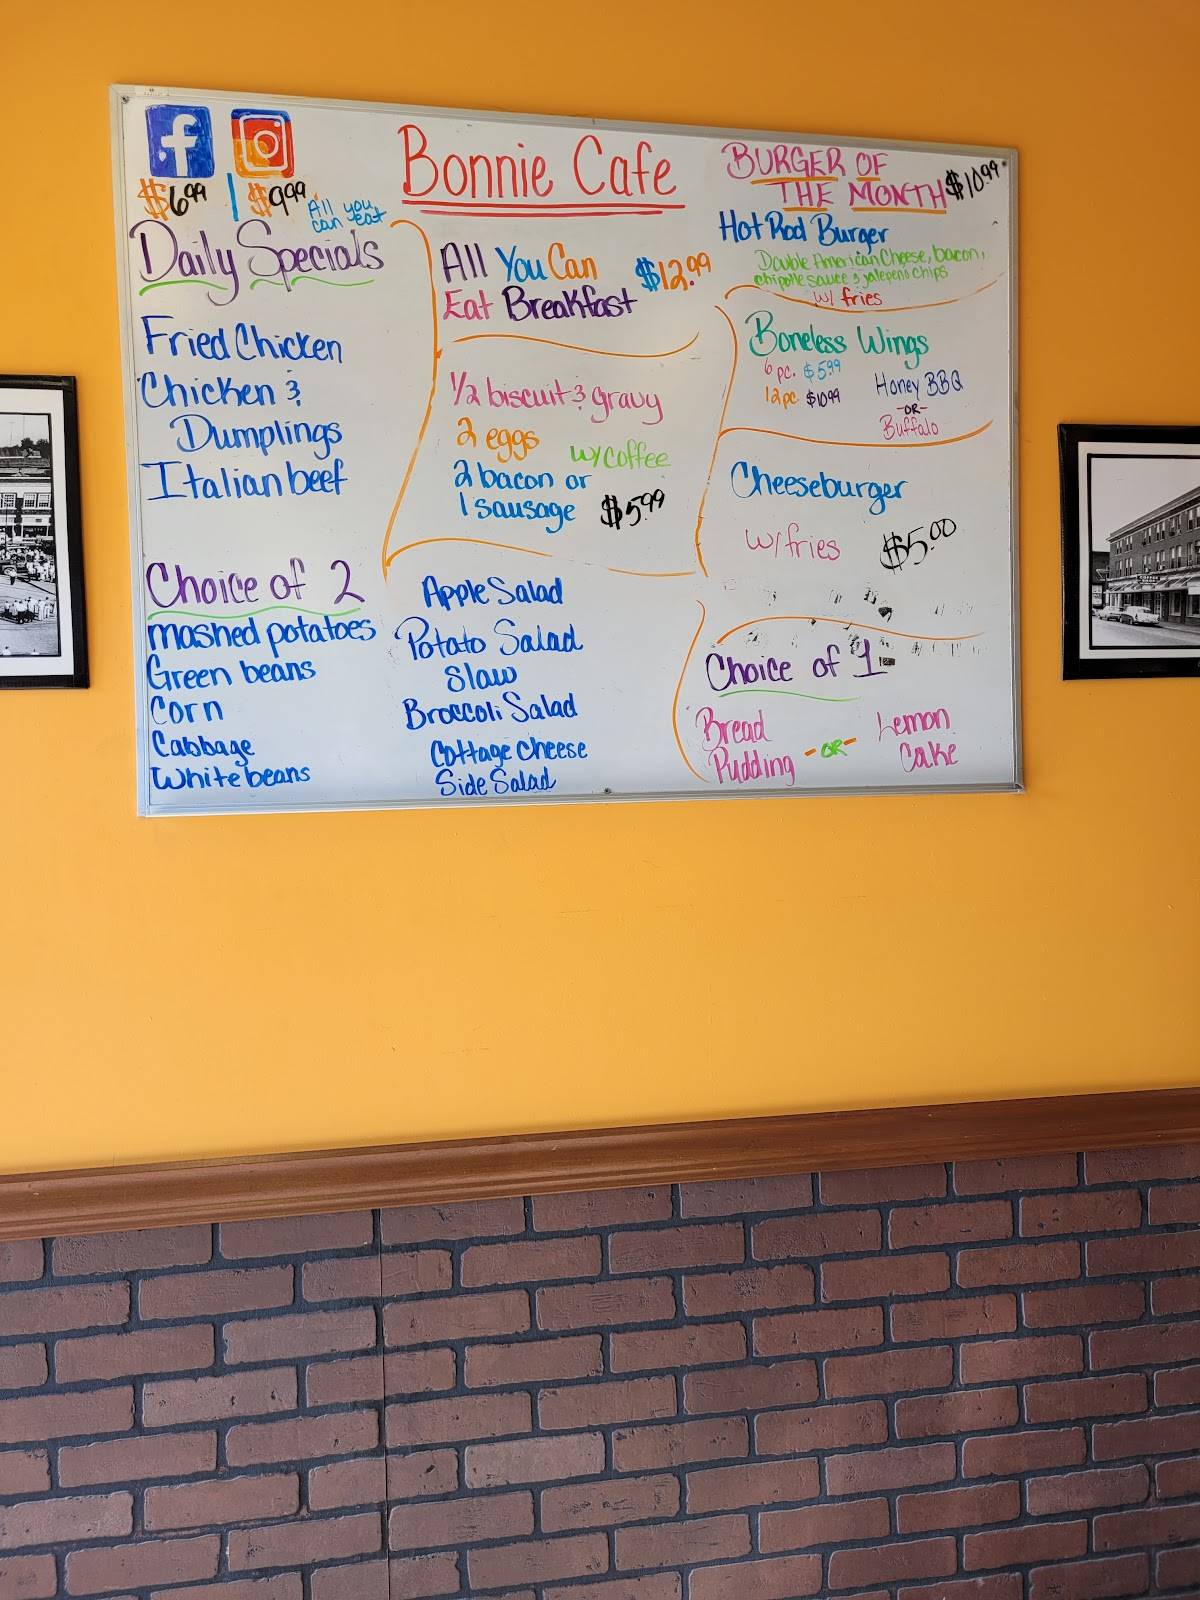 Bonnie Cafe
$6.99 | $9.99 All you
can eat
Daily Specials
Fried Chicken
Chicken &
Dumplings
Italian beef
Choice of 2
mashed potatoes
Green beans
Corn
Cabbage
White beans
Apple Salad
Potato Salad
Slaw
Broccoli Salad
Cottage cheese
Side Salad
All You Can
Eat Breakfast
$12.99
1/2 biscuit & gravy
2 eggs
w/ coffee
2 bacon or
1 sausage $5.99
BURGER OF
THE MONTH $10.99
Hot Rod Burger
Double American Cheese, bacon,
chipotle sauce & jalepeno chips
w/ fries
Boneless Wings
6 pc. $5.99
12 pc $10.99
Honey BBQ
-OR-
Buffalo
Cheeseburger
w/ fries $5.00
Choice of 1
Bread
Pudding
-OR-
Lemon
Cake